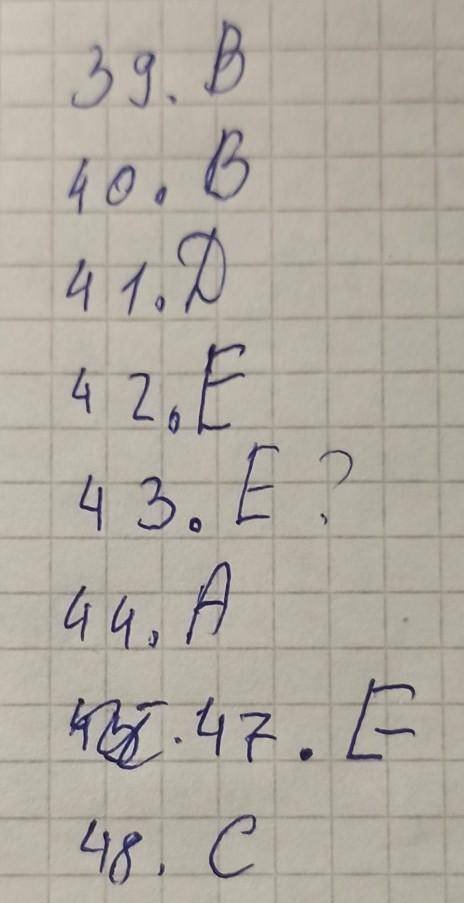 39. B
40. B
41. D
42. E
43. E ?
44. A
47. E
48. C